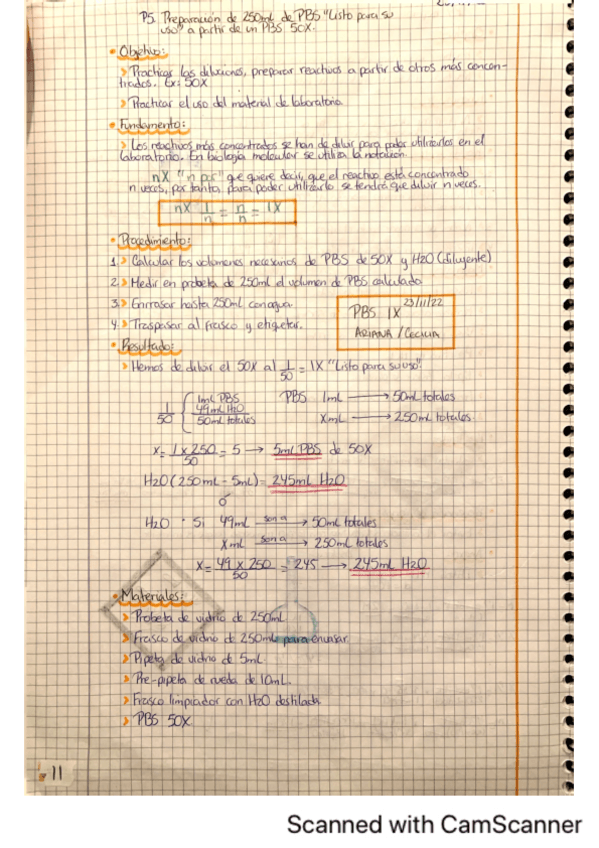 P5. Preparación de 250mL de PBS "Listo para su
uso" a partir de un PBS 50X.
Objetivo:
Practicar las diluciones, preparar reactivos a partir de otros más concen-
trados. Ex: 50X
Practicar el uso del material de laboratorio
Fundamento:
Los reactivos más concentrados se han de diluir para poder utilizarlos en el
laboratorio. En biología molecular se utiliza la notación
nX "n por" que quiere decir, que el reactivo está concentrado
n veces, por tanto, para poder utilizarlo se tendrá que diluir n veces.
nX 1/n = n/n = 1X
Procedimiento:
1. Calcular los volúmenes necesarios de PBS de 50X y H2O (diluyente)
2. Medir en probeta de 250ml el volumen de PBS calculado
3. Enrrasar hasta 250ml con agua
4. Traspasar al frasco y etiquetar.
23/11/22
PBS 1X
ARIANA / CECILIA
Resultado:
Hemos de diluir el 50X al 1/50 = 1X "Listo para su uso".
1/50 { 1mL PBS
49mL H2O
50mL totales
PBS 1mL → 50ml totales
XmL → 250mL totales
X= 1 x 250 / 50 = 5 → 5mL PBS de 50X
H2O (250mL - 5mL) = 245mL H2O
ó
H2O • Si 49mL son a → 50mL totales
XmL son a → 250mL totales
X= 49 x 250 / 50 = 245 → 245mL H2O
Materiales:
Probeta de vidrio de 250mL
Frasco de vidrio de 250mL para envasar
Pipeta de vidrio de 5mL
Pre-pipeta de rueda de 10mL.
Frasco limpiador con H2O destilada
PBS 50X
11
Scanned with CamScanner